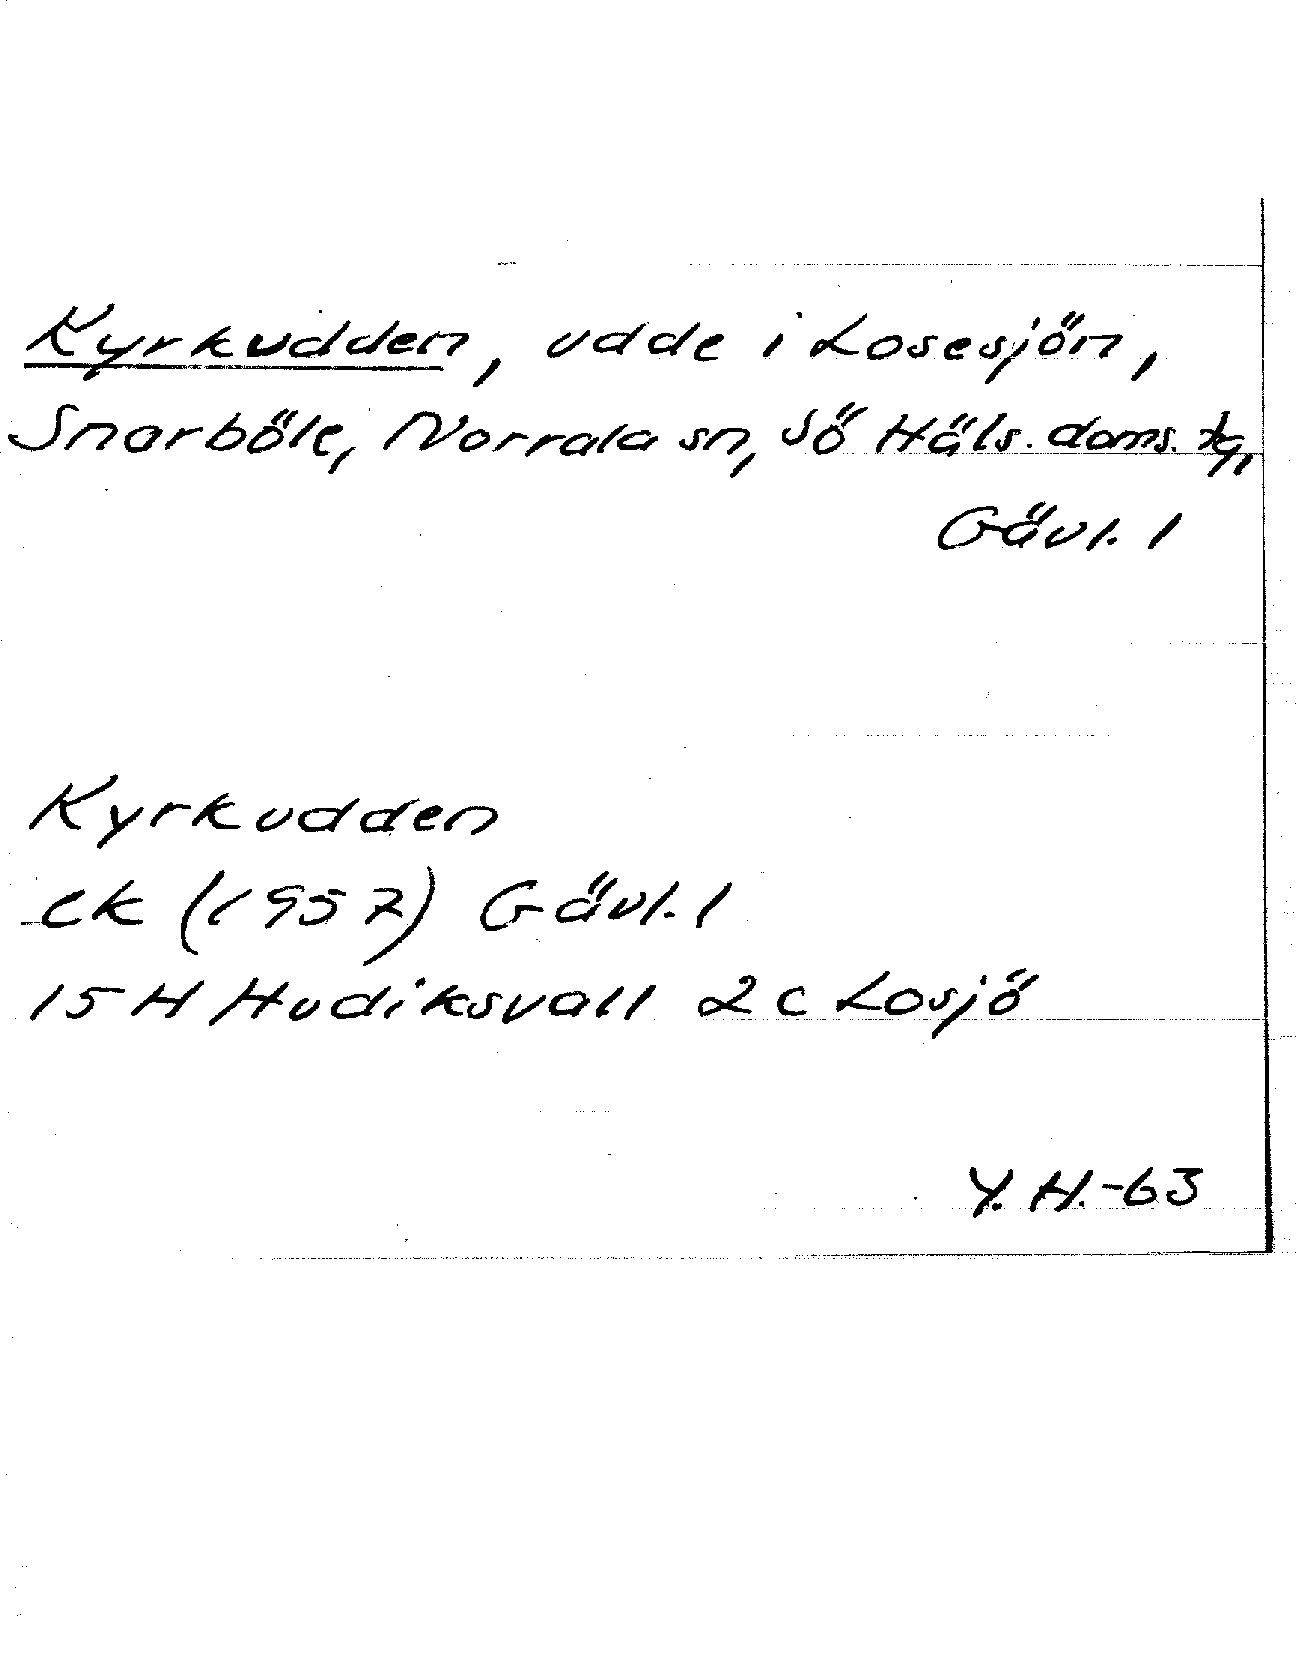 Kyrkudden, udde i Losesjön,
Snarböle, Norrala sn, Sö Häls. doms. tg,
Gävl. l
Kyrkudden
ek (1957) Gävl. l
15 H Hudiksvall 2 c Losjö
Y. H.-63